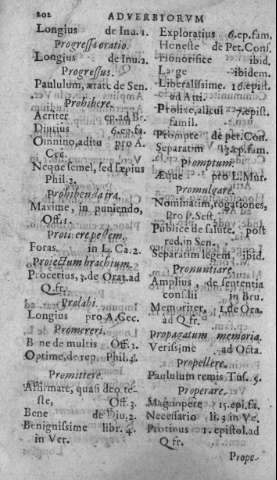 202 ADVERBIORVM
Longius de Inu. 1.
Progressa oratio.
Longius de Inu. 2.
Progressus.
Paululum, ætate de Sen.
Prohibere.
Acriter ep. ad Br.
Diutius 6. ep. fa.
Omnino, aditu pro A.
Cæc.
Neque semel, sed sæpius
Phil. 2.
Prohibenda ira.
Maxime, in puniendo,
Off. 1.
Proijcere pedem.
Foras in L. Ca. 2.
Proiectum brachium.
Procerius, 3. de Orat. ad
Q. fr.
Prolabi.
Longius pro A. Cec.
Promereri.
Bene de multis Off. 2.
Optime, de rep. Phil. 4.
Promittere.
Affirmate, quasi deo te-
ste, Off. 3
Bene de Diu. 2.
Benignissime libr. 4.
in Ver.
Exploratius 6. ep. fam.
Honeste de Pet. Cons.
Honorifice ibid.
Large ibidem.
Liberalissime. 16. epist.
ad Atti.
Prolixe, alicui 7. epist.
famil.
Prompte de pet. Con.
Separatim 13. ep. fam.
Promptum.
Æque pro L. Mur.
Promulgare.
Nominatim, rogationes,
pro P. Sext.
Publice de salute. post
red. in Sen.
Separatim legem ibid.
Pronuntiare.
Amplius, de sententia
consilii in Bru.
Memoriter, 1. de Ora.
ad Q. fr.
propagatum memoria.
Verissime ad Octa.
Propellere.
Paululum remis Tus. 5.
Properare.
Magnopere 15. epi. fa.
Necessario li. 3 in Ve.
Protinus 1. epistol. ad
Q. fr.
Prope-